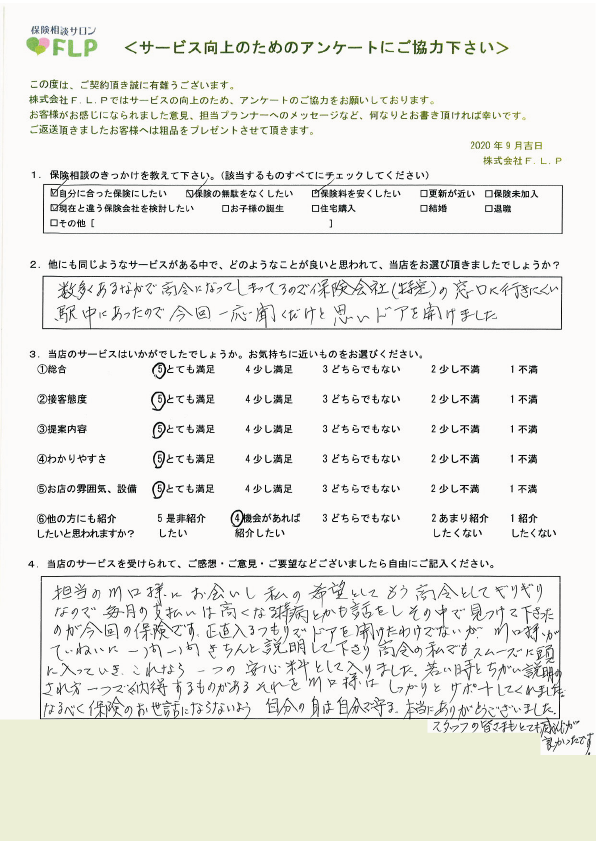 保険相談サロン
FLP
＜サービス向上のためのアンケートにご協力下さい＞
この度は、ご契約頂き誠に有難うございます。
株式会社F.L.Pではサービスの向上のため、アンケートのご協力をお願いしております。
お客様がお感じになられました意見、担当プランナーへのメッセージなど、何なりとお書き頂ければ幸いです。
ご返送頂きましたお客様へは粗品をプレゼントさせて頂きます。
2020年9月吉日
株式会社F.L.P
1. 保険相談のきっかけを教えて下さい。(該当するものすべてにチェックしてください)
☑自分に合った保険にしたい ☑保険の無駄をなくしたい ☑保険料を安くしたい □更新が近い □保険未加入
☑現在と違う保険会社を検討したい □お子様の誕生 □住宅購入 □結婚 □退職
□その他 [ ]
2. 他にも同じようなサービスがある中で、どのようなことが良いと思われて、当店をお選び頂きましたでしょうか?
数多くあるなかで高令になってしまってるので保険会社(特定)の窓口に行きにくい
駅中にあったので今回一応聞くだけと思いドアを開けました
3. 当店のサービスはいかがでしたでしょうか。お気持ちに近いものをお選びください。
①総合 5とても満足 4少し満足 3どちらでもない 2少し不満 1不満
②接客態度 5とても満足 4少し満足 3どちらでもない 2少し不満 1不満
③提案内容 5とても満足 4少し満足 3どちらでもない 2少し不満 1不満
④わかりやすさ 5とても満足 4少し満足 3どちらでもない 2少し不満 1不満
⑤お店の雰囲気、設備 5とても満足 4少し満足 3どちらでもない 2少し不満 1不満
⑥他の方にも紹介 5是非紹介 4機会があれば 3どちらでもない 2あまり紹介 1紹介
したいと思われますか? したい 紹介したい したくない したくない
4. 当店のサービスを受けられて、ご感想・ご意見・ご要望などございましたら自由にご記入ください。
担当の川口様にお会いし私の希望としてもう高令としてギリギリ
なので毎月の支払いは高くなる持病とかも話をしその中で見つけて下さった
のが今回の保険です。正直入るつもりでドアを開けたわけでないが川口様が
ていねいに一つ一つきちんと説明して下さり高令の私でもスムーズに頭
に入っていき これなら一つの安心料として入りました。若い時とちがい説明の
され方一つで納得するものがあるそれを川口様はしっかりとサポートしてくれました
なるべく保険のお世話にならないよう 自分の身は自分で守る。本当にありがとうございました。
スタッフの皆さまもとても感じが
良かったです!